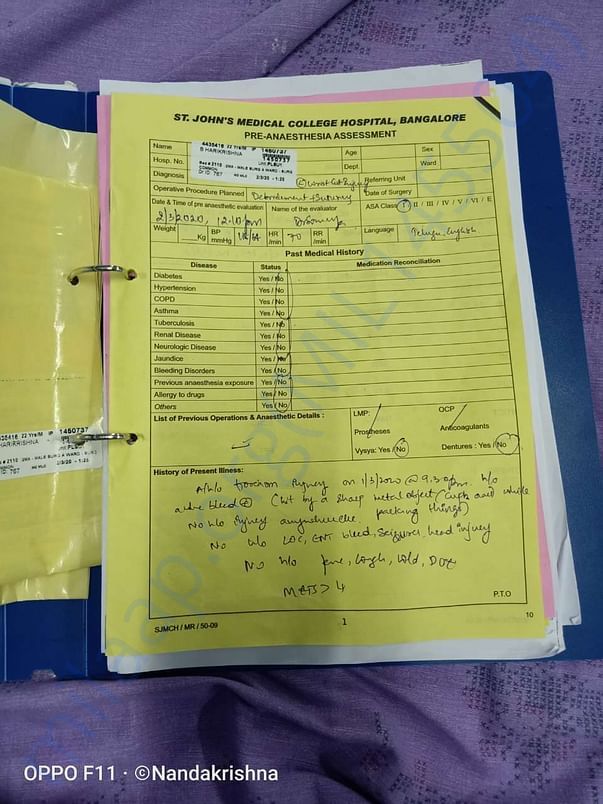 ST. JOHN'S MEDICAL COLLEGE HOSPITAL, BANGALORE
PRE-ANAESTHESIA ASSESSMENT
Name
4435416 22 Yrs/M IP 1460737
B HARIKRISHNA
Age
Sex
Hosp. No.
Dept.
Ward
Diagnosis
Referring Unit
Operative Procedure Planned
Debridement + Suturing
Date of Surgery
Date & Time of pre anaesthetic evaluation
Name of the evaluator
ASA Class I / II / III / IV / V / VI / E
2/3/2020, 12.10 pm
Weight
Kg
BP
mmHg
HR
/min
70
RR
/min
Language
Telugu, English
Past Medical History
Disease
Status
Medication Reconciliation
Diabetes Yes / No
Hypertension Yes / No
COPD Yes / No
Asthma Yes / No
Tuberculosis Yes / No
Renal Disease Yes / No
Neurologic Disease Yes / No
Jaundice Yes / No
Bleeding Disorders Yes / No
Previous anaesthesia exposure Yes / No
Allergy to drugs Yes / No
Others Yes / No
List of Previous Operations & Anaesthetic Details :
LMP:
OCP
Prostheses
Anticoagulants
Vysya: Yes / No
Dentures : Yes / No
History of Present Illness:
injury on 1/3/2020 @ 9.30 pm. H/o
active bleed + (cut by a sharp metal object while
packing things)
No h/o injury anywhere else
No h/o LOC, ENT bleed, seizures, head injury
No h/o fever, cough, cold,
METS > 4
P.T.O
SJMCH / MR / 50-09
1
10
1460737
HARIKRISHNA
OPPO F11 · ©Nandakrishna